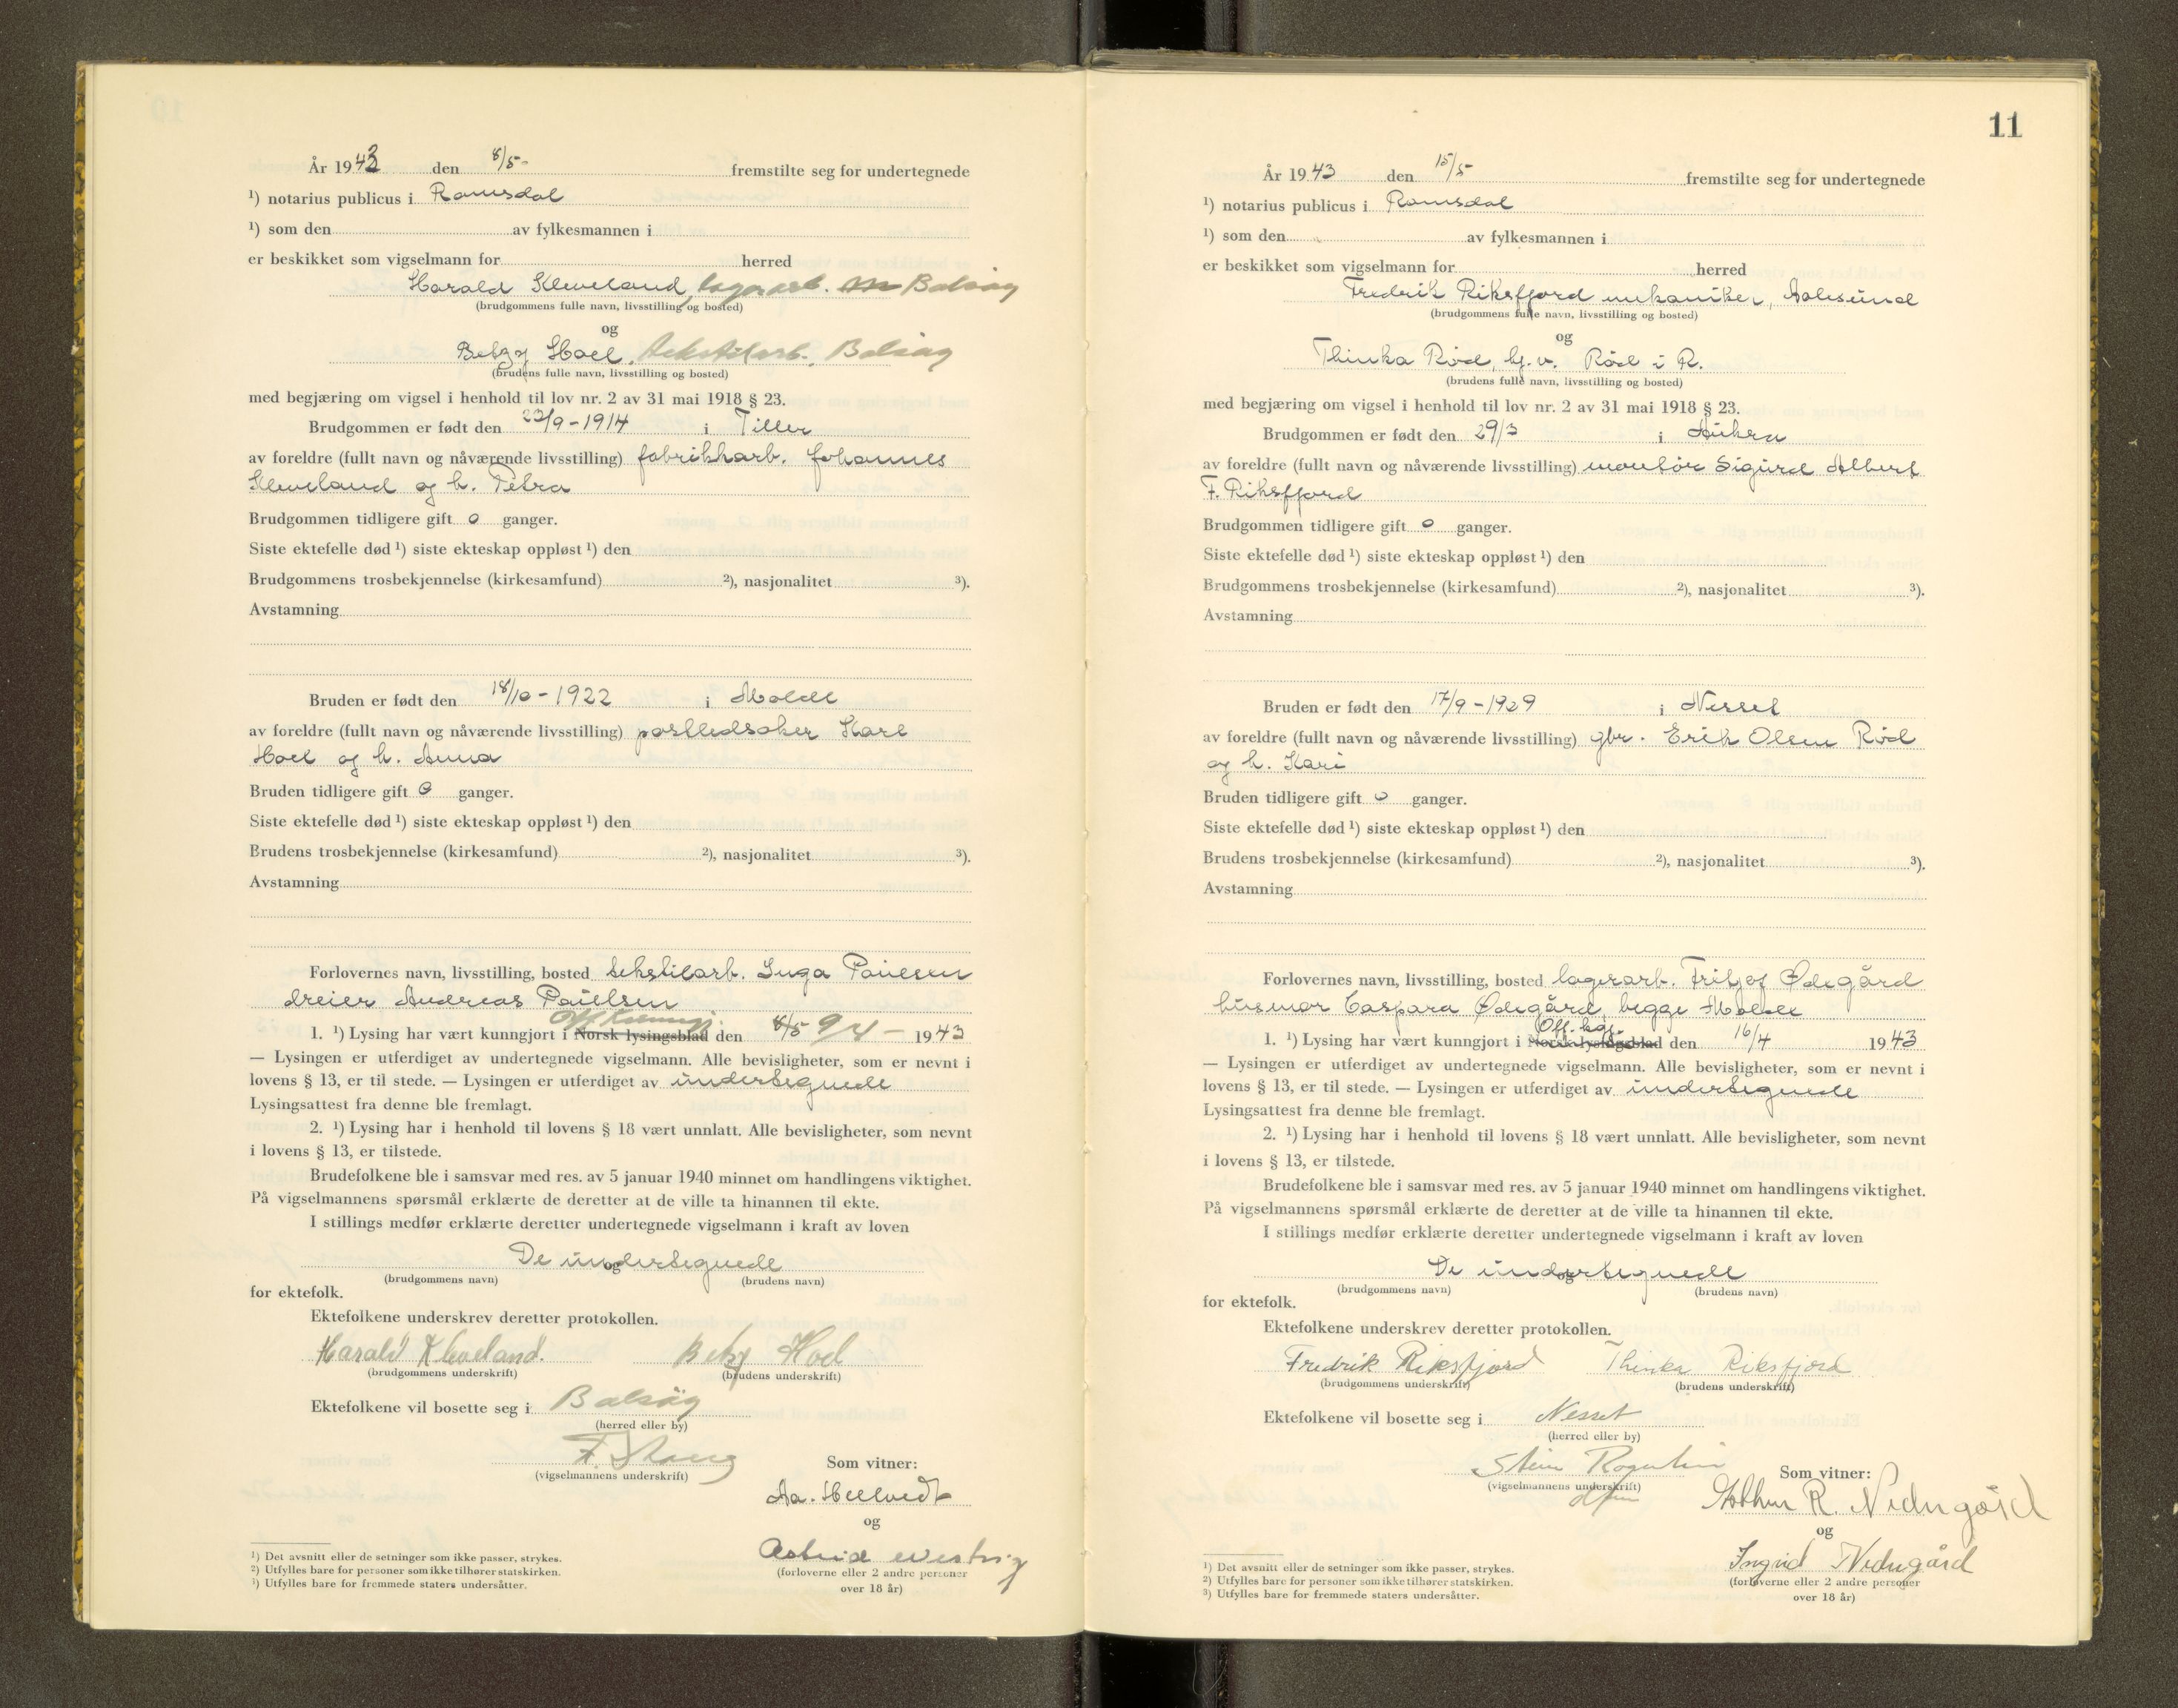 År 1943 den 8/5- fremstilte seg for undertegnede
¹) notarius publicus i Romsdal
¹) som den av fylkesmannen i
er beskikket som vigselmann for herred
Harald Kleveland, lagerarb. Bolsøy
(brudgommens fulle navn, livsstilling og bosted)
og
Betzy Hoel, tekstilarb. Bolsøy
(brudens fulle navn, livsstilling og bosted)
med begjæring om vigsel i henhold til lov nr. 2 av 31 mai 1918 § 23.
Brudgommen er født den 23/9-1914 i Tiller
av foreldre (fullt navn og nåværende livsstilling) fabrikkarb. Johannes
Kleveland og h. Petra
Brudgommen tidligere gift 0 ganger.
Siste ektefelle død ¹) siste ekteskap oppløst ¹) den
Brudgommens trosbekjennelse (kirkesamfund) ²), nasjonalitet ³).
Avstamning
Bruden er født den 18/10-1922 i Molde
av foreldre (fullt navn og nåværende livsstilling) postledsaker Karl
Hoel og h. Anna
Bruden tidligere gift 0 ganger.
Siste ektefelle død ¹) siste ekteskap oppløst ¹) den
Brudens trosbekjennelse (kirkesamfund) ²), nasjonalitet ³).
Avstamning
Forlovernes navn, livsstilling, bosted tekstilarb. Inga Paulsen
dreier Andreas Paulsen
Off. Kunngj.
1. ¹) Lysing har vært kunngjort i Norsk lysingsblad den 8/5 9/4- 1943
— Lysingen er utferdiget av undertegnede vigselmann. Alle bevisligheter, som er nevnt i
lovens § 13, er til stede. — Lysingen er utferdiget av undertegnede
Lysingsattest fra denne ble fremlagt.
2. ¹) Lysing har i henhold til lovens § 18 vært unnlatt. Alle bevisligheter, som nevnt
i lovens § 13, er tilstede.
Brudefolkene ble i samsvar med res. av 5 januar 1940 minnet om handlingens viktighet.
På vigselmannens spørsmål erklærte de deretter at de ville ta hinannen til ekte.
I stillings medfør erklærte deretter undertegnede vigselmann i kraft av loven
De undertegnede
og
(brudgommens navn) (brudens navn)
for ektefolk.
Ektefolkene underskrev deretter protokollen.
Harald Kleveland. Betzy Hoel
(brudgommens underskrift) (brudens underskrift)
Ektefolkene vil bosette seg i Bolsøy
(herred eller by)
F. Stang
(vigselmannens underskrift) Som vitner:
Aa. Hellvedt
og
Astrid
(forloverne eller 2 andre personer
over 18 år)
¹) Det avsnitt eller de setninger som ikke passer, strykes.
²) Utfylles bare for personer som ikke tilhører statskirken.
³) Utfylles bare for fremmede staters undersåtter.
11
År 1943 den 15/5 fremstilte seg for undertegnede
¹) notarius publicus i Romsdal
¹) som den av fylkesmannen i
er beskikket som vigselmann for herred
Fredrik Riksfjord mekaniker, Aalesund
(brudgommens fulle navn, livsstilling og bosted)
og
Thinka Rød, hj.v. Rød i R.
(brudens fulle navn, livsstilling og bosted)
med begjæring om vigsel i henhold til lov nr. 2 av 31 mai 1918 § 23.
Brudgommen er født den 29/3 i Aukra
av foreldre (fullt navn og nåværende livsstilling) montør Sigurd Albert
F. Riksfjord
Brudgommen tidligere gift 0 ganger.
Siste ektefelle død ¹) siste ekteskap oppløst ¹) den
Brudgommens trosbekjennelse (kirkesamfund) ²), nasjonalitet ³).
Avstamning
Bruden er født den 17/9-1929 i Nesset
av foreldre (fullt navn og nåværende livsstilling) gbr. Erik Olsen Rød
og h. Kari
Bruden tidligere gift 0 ganger.
Siste ektefelle død ¹) siste ekteskap oppløst ¹) den
Brudens trosbekjennelse (kirkesamfund) ²), nasjonalitet ³).
Avstamning
Forlovernes navn, livsstilling, bosted lagerarb. Fritjof Ødegård
husmor Caspara Ødegård, begge Molde
Off. kgj.
1. ¹) Lysing har vært kunngjort i Norsk lysingsblad den 16/4 1943
— Lysingen er utferdiget av undertegnede vigselmann. Alle bevisligheter, som er nevnt i
lovens § 13, er til stede. — Lysingen er utferdiget av undertegnede
Lysingsattest fra denne ble fremlagt.
2. ¹) Lysing har i henhold til lovens § 18 vært unnlatt. Alle bevisligheter, som nevnt
i lovens § 13, er tilstede.
Brudefolkene ble i samsvar med res. av 5 januar 1940 minnet om handlingens viktighet.
På vigselmannens spørsmål erklærte de deretter at de ville ta hinannen til ekte.
I stillings medfør erklærte deretter undertegnede vigselmann i kraft av loven
De undertegnede
og
(brudgommens navn) (brudens navn)
for ektefolk.
Ektefolkene underskrev deretter protokollen.
Fredrik Riksfjord Thinka Riksfjord
(brudgommens underskrift) (brudens underskrift)
Ektefolkene vil bosette seg i Nesset
(herred eller by)
Stein Rognlien
(vigselmannens underskrift) Som vitner:
R. Nedregård
og
Ingrid Nedregård
(forloverne eller 2 andre personer
over 18 år)
¹) Det avsnitt eller de setninger som ikke passer, strykes.
²) Utfylles bare for personer som ikke tilhører statskirken.
³) Utfylles bare for fremmede staters undersåtter.